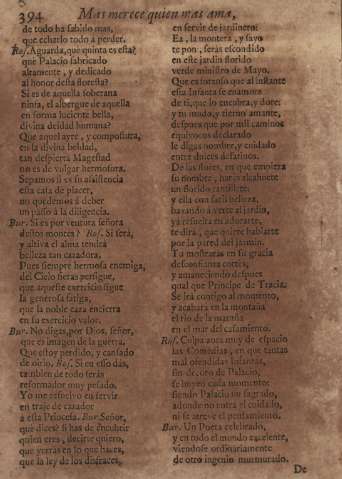 394 Mas merece quien mas ama,
de todo ha sabido mas,
que echarlo todo à perder.
Ros. Aguarda, què quinta es esta?
què Palacio fabricado
altamente, y dedicado
al honor desta floresta?
Si es de aquella soberana
ninfa, el albergue de aquella
en forma luciente bella,
divina deidad humana?
Que aquel ayre, y compostura,
en la divina beldad,
tan despierta Magestad
no es de vulgar hermosura.
Sepamos si es su assistencia
esta casa de placer,
no quedemos à deber
un passo à la diligencia.
Bur. Si es por ventura señora
destos montes? Ros. Si serà,
y altiva el alma tendrà
belleza tan cazadora.
Pues siempre hermosa enemiga,
del Cielo fieras persigue,
que aquesse exercicio sigue
la generosa fatiga,
que la noble caza encierra
en su exercicio valor.
Bur. No digas, por Dios, señor,
que es imagen de la guerra.
Que estoy perdido, y cansado
de oirlo. Ros. Si en esso dàs,
tambien de todo seràs
reformador muy pesado.
Yo me resuelvo en servir
en trage de cazador
à esta Princesa. Bur. Señor,
què dices? si has de encubrir
quien eres, decirte quiero,
que yerras en lo que haces,
que la ley de los disfraces,
en servir de jardinero:
Ea, la montera, y sayo
te pon, seràs escondido
en este jardin florido
verde ministro de Mayo.
Que es forzoso que al instante
essa Infanta se enamore
de ti, que lo encubra, y dore:
y tu mudo, y tierno amante,
despues que por mil caminos
equivocos declarado
le digas nombre, y cuidado
entre dulces desatinos.
De las flores, en que empieza
su nombre, haràs al cuhete
un florido ramillete:
y ella con facil belleza,
baxando à verte al jardin,
ya resuelta en adorarte,
te dirà, que quiere hablarte
por la pared del jazmin.
Tu mostraràs en su gracia
desconfianza cortès,
y amaneciendo despues
qual que Principe de Tracia.
Se irà contigo al momento,
y acabarà en la montaña
el rio de la maraña
en el mar del casamiento.
Ros. Culpa aora muy de espacio
las Comedias, en que tantas
mal ofendidas Infantas,
sin decoro de Palacio,
se huyen cada momento:
siendo Palacio un sagrado,
adonde no entra el cuidado,
ni se atreve el pensamiento.
Bur. Un Poeta celebrado,
y en todo el mundo excelente,
viendose ordinariamente
de otro ingenio murmurado.
De